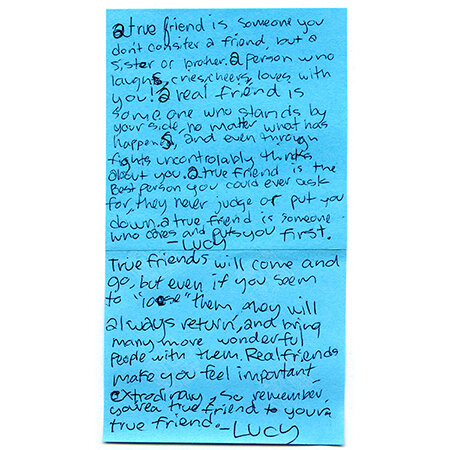 a true friend is someone you
don't consiter a friend, but a
sister or brother. a person who
laughs, cries, cheers, loves with
you! a real friend is
someone who stands by
your side, no matter what has
happens, and even through
fights uncontrolably thinks
about you. a true friend is the
Best person you could ever ask
for, they never judge or put you
down. a true friend is someone
who cares and puts you first.
-LUCY
True friends will come and
go, but even if you seem
to "loose" them they will
always return, and bring
many more wonderful
people with them. Real friends
make you feel important
extrodinary, so remember,
your a true friend to your
true friend. -LUCY